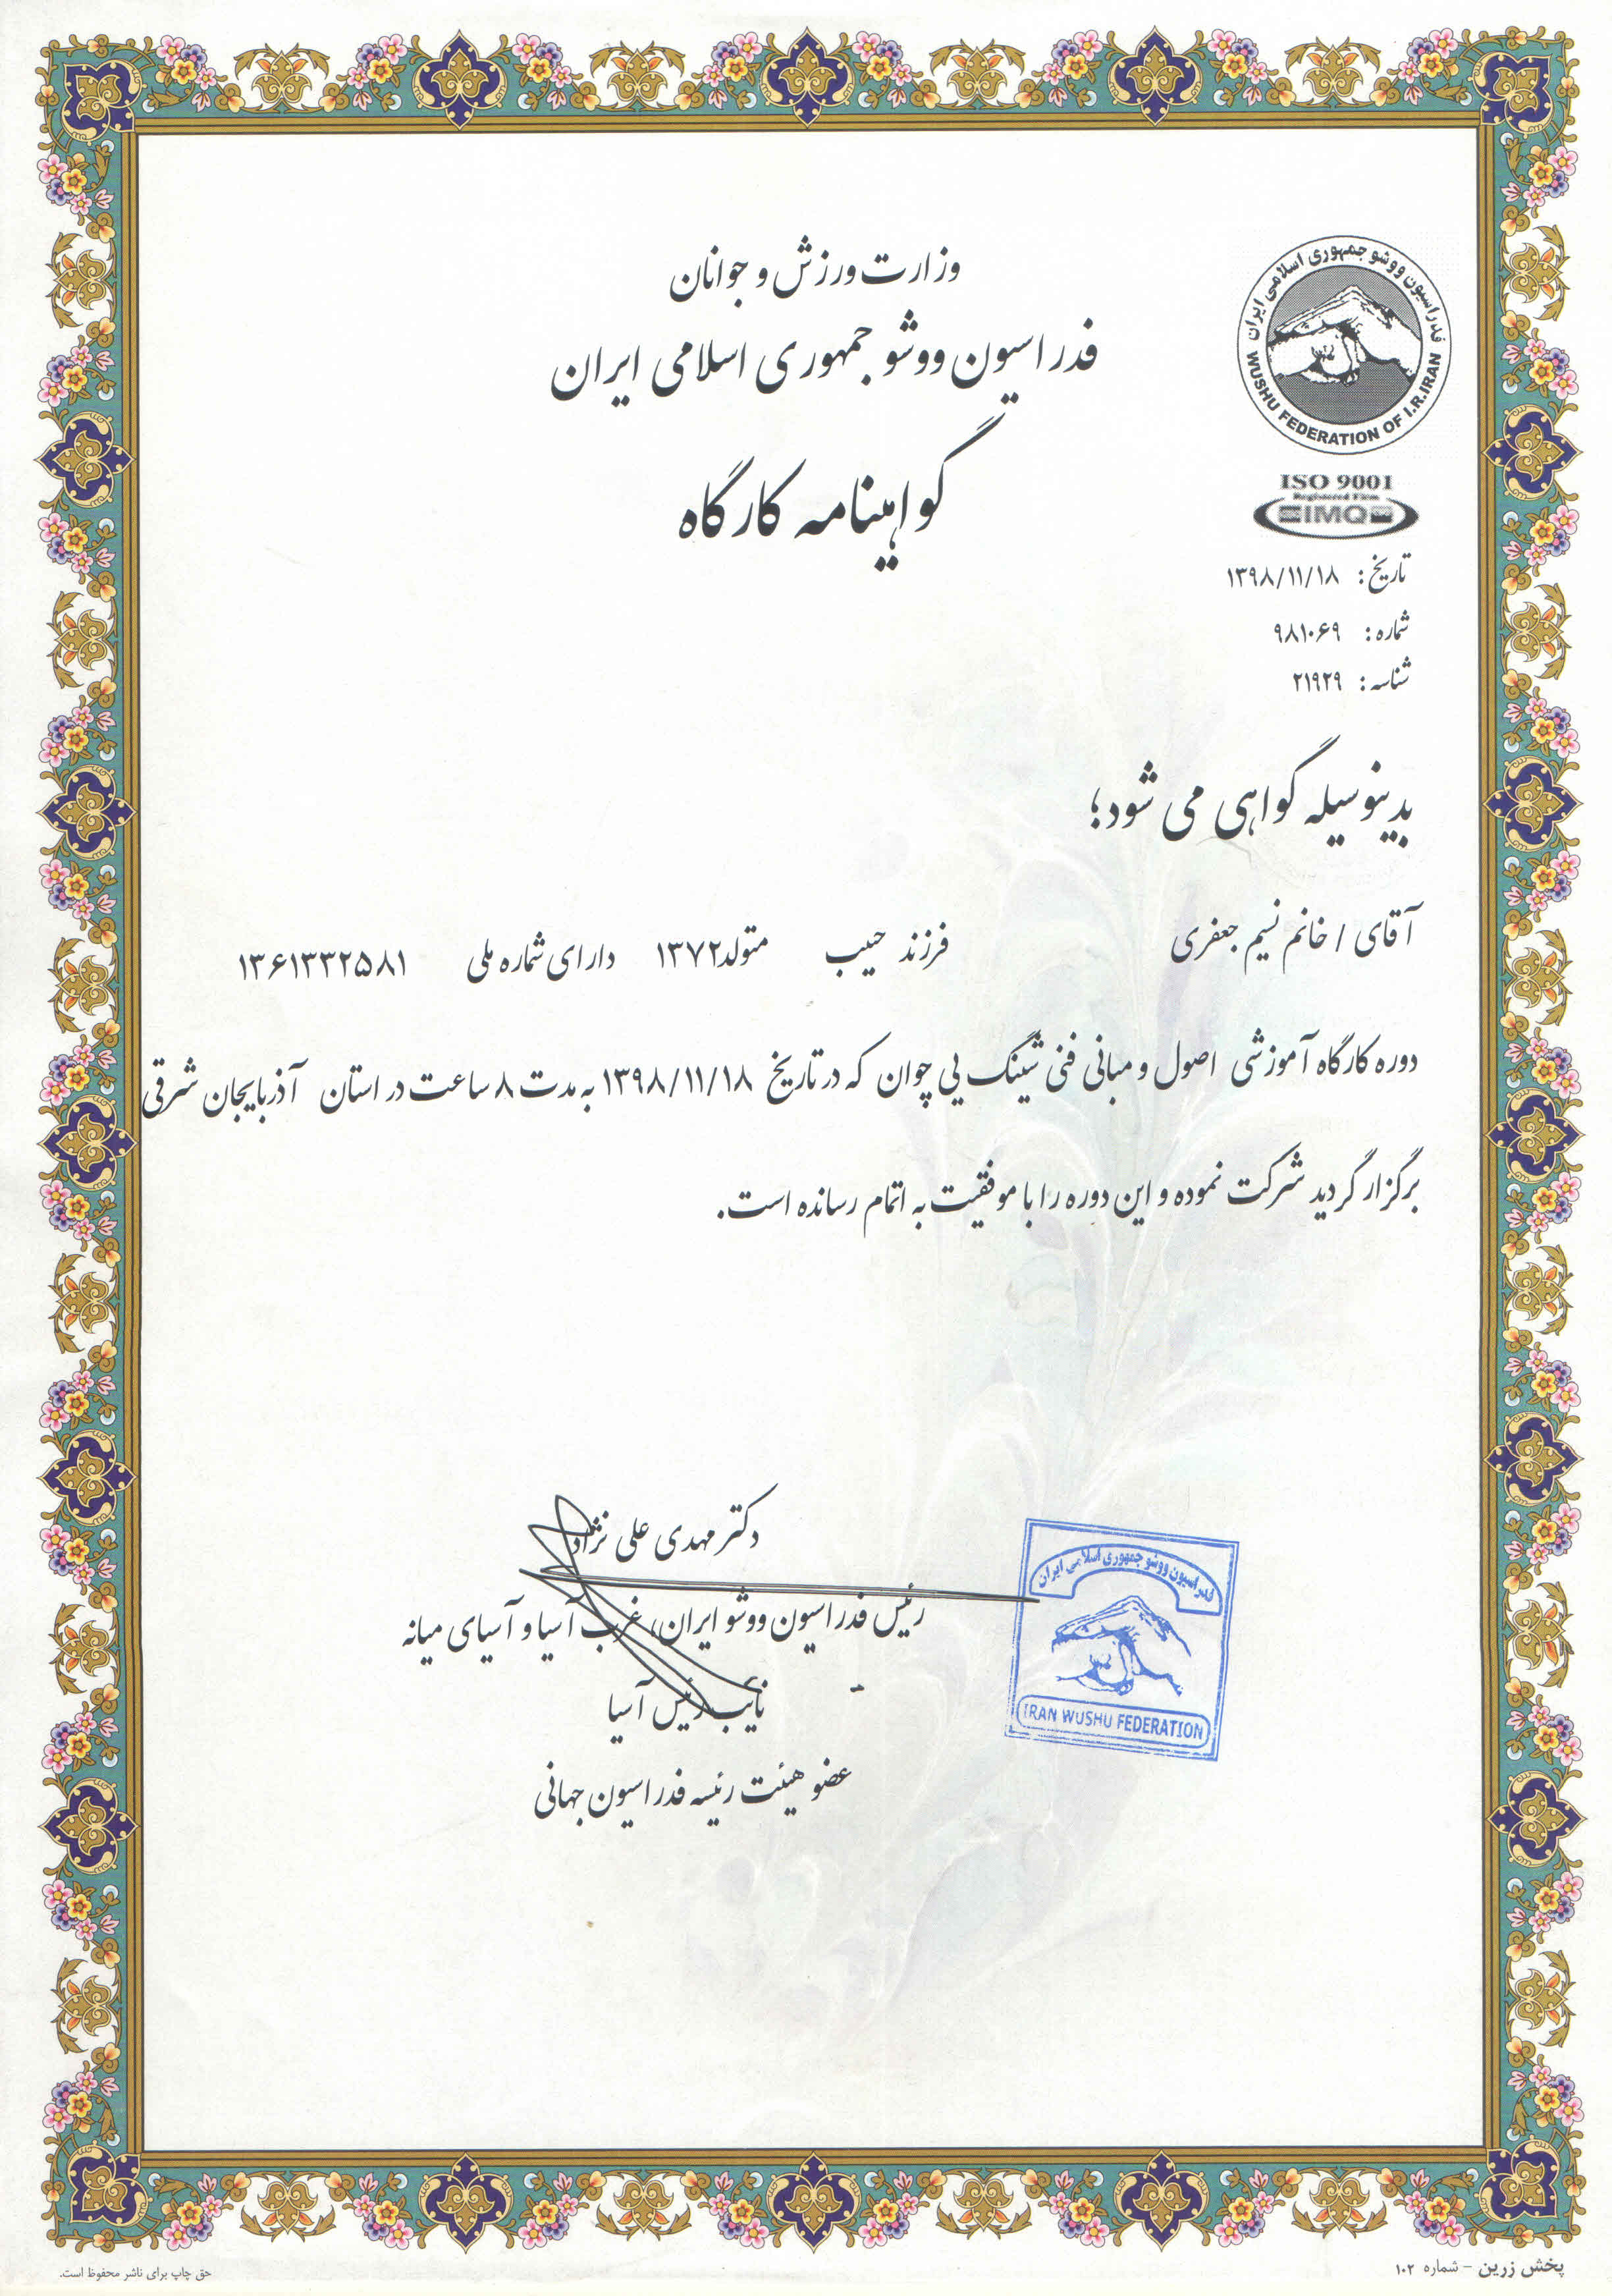 وزارت ورزش و جوانان
فدراسیون ووشو جمهوری اسلامی ایران
گواهینامه کارگاه
فدراسیون ووشو جمهوری اسلامی ایران
WUSHU FEDERATION OF I.R.IRAN
ISO 9001
Registered Firm
IMQ
تاریخ: ۱۳۹۸/۱۱/۱۸
شماره: ۹۸۱۰۶۹
شناسه: ۲۱۹۲۹
بدینوسیله گواهی می شود؛
آقای / خانم نسیم جعفری فرزند حبیب متولد ۱۳۷۲ دارای شماره ملی ۱۳۶۱۳۳۲۵۸۱
دوره کارگاه آموزشی اصول و مبانی فنی شینگ یی چوان که در تاریخ ۱۳۹۸/۱۱/۱۸ به مدت ۸ ساعت در استان آذربایجان شرقی
برگزار گردید شرکت نموده و این دوره را با موفقیت به اتمام رسانده است.
دکتر مهدی علی نژاد
رئیس فدراسیون ووشو ایران، غرب آسیا و آسیای میانه
نایب رئیس آسیا
عضو هیئت رئیسه فدراسیون جهانی
فدراسیون ووشو جمهوری اسلامی ایران
IRAN WUSHU FEDERATION
پخش زرین - شماره ۱۰۲
حق چاپ برای ناشر محفوظ است.